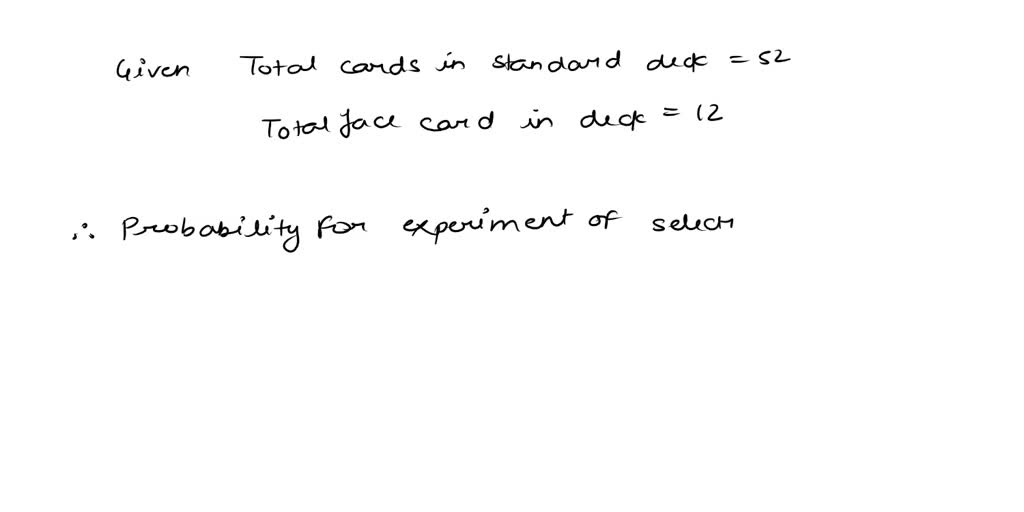 Given Total cards in standard deck = 52
Total face card in deck = 12
∴ Probability for experiment of select